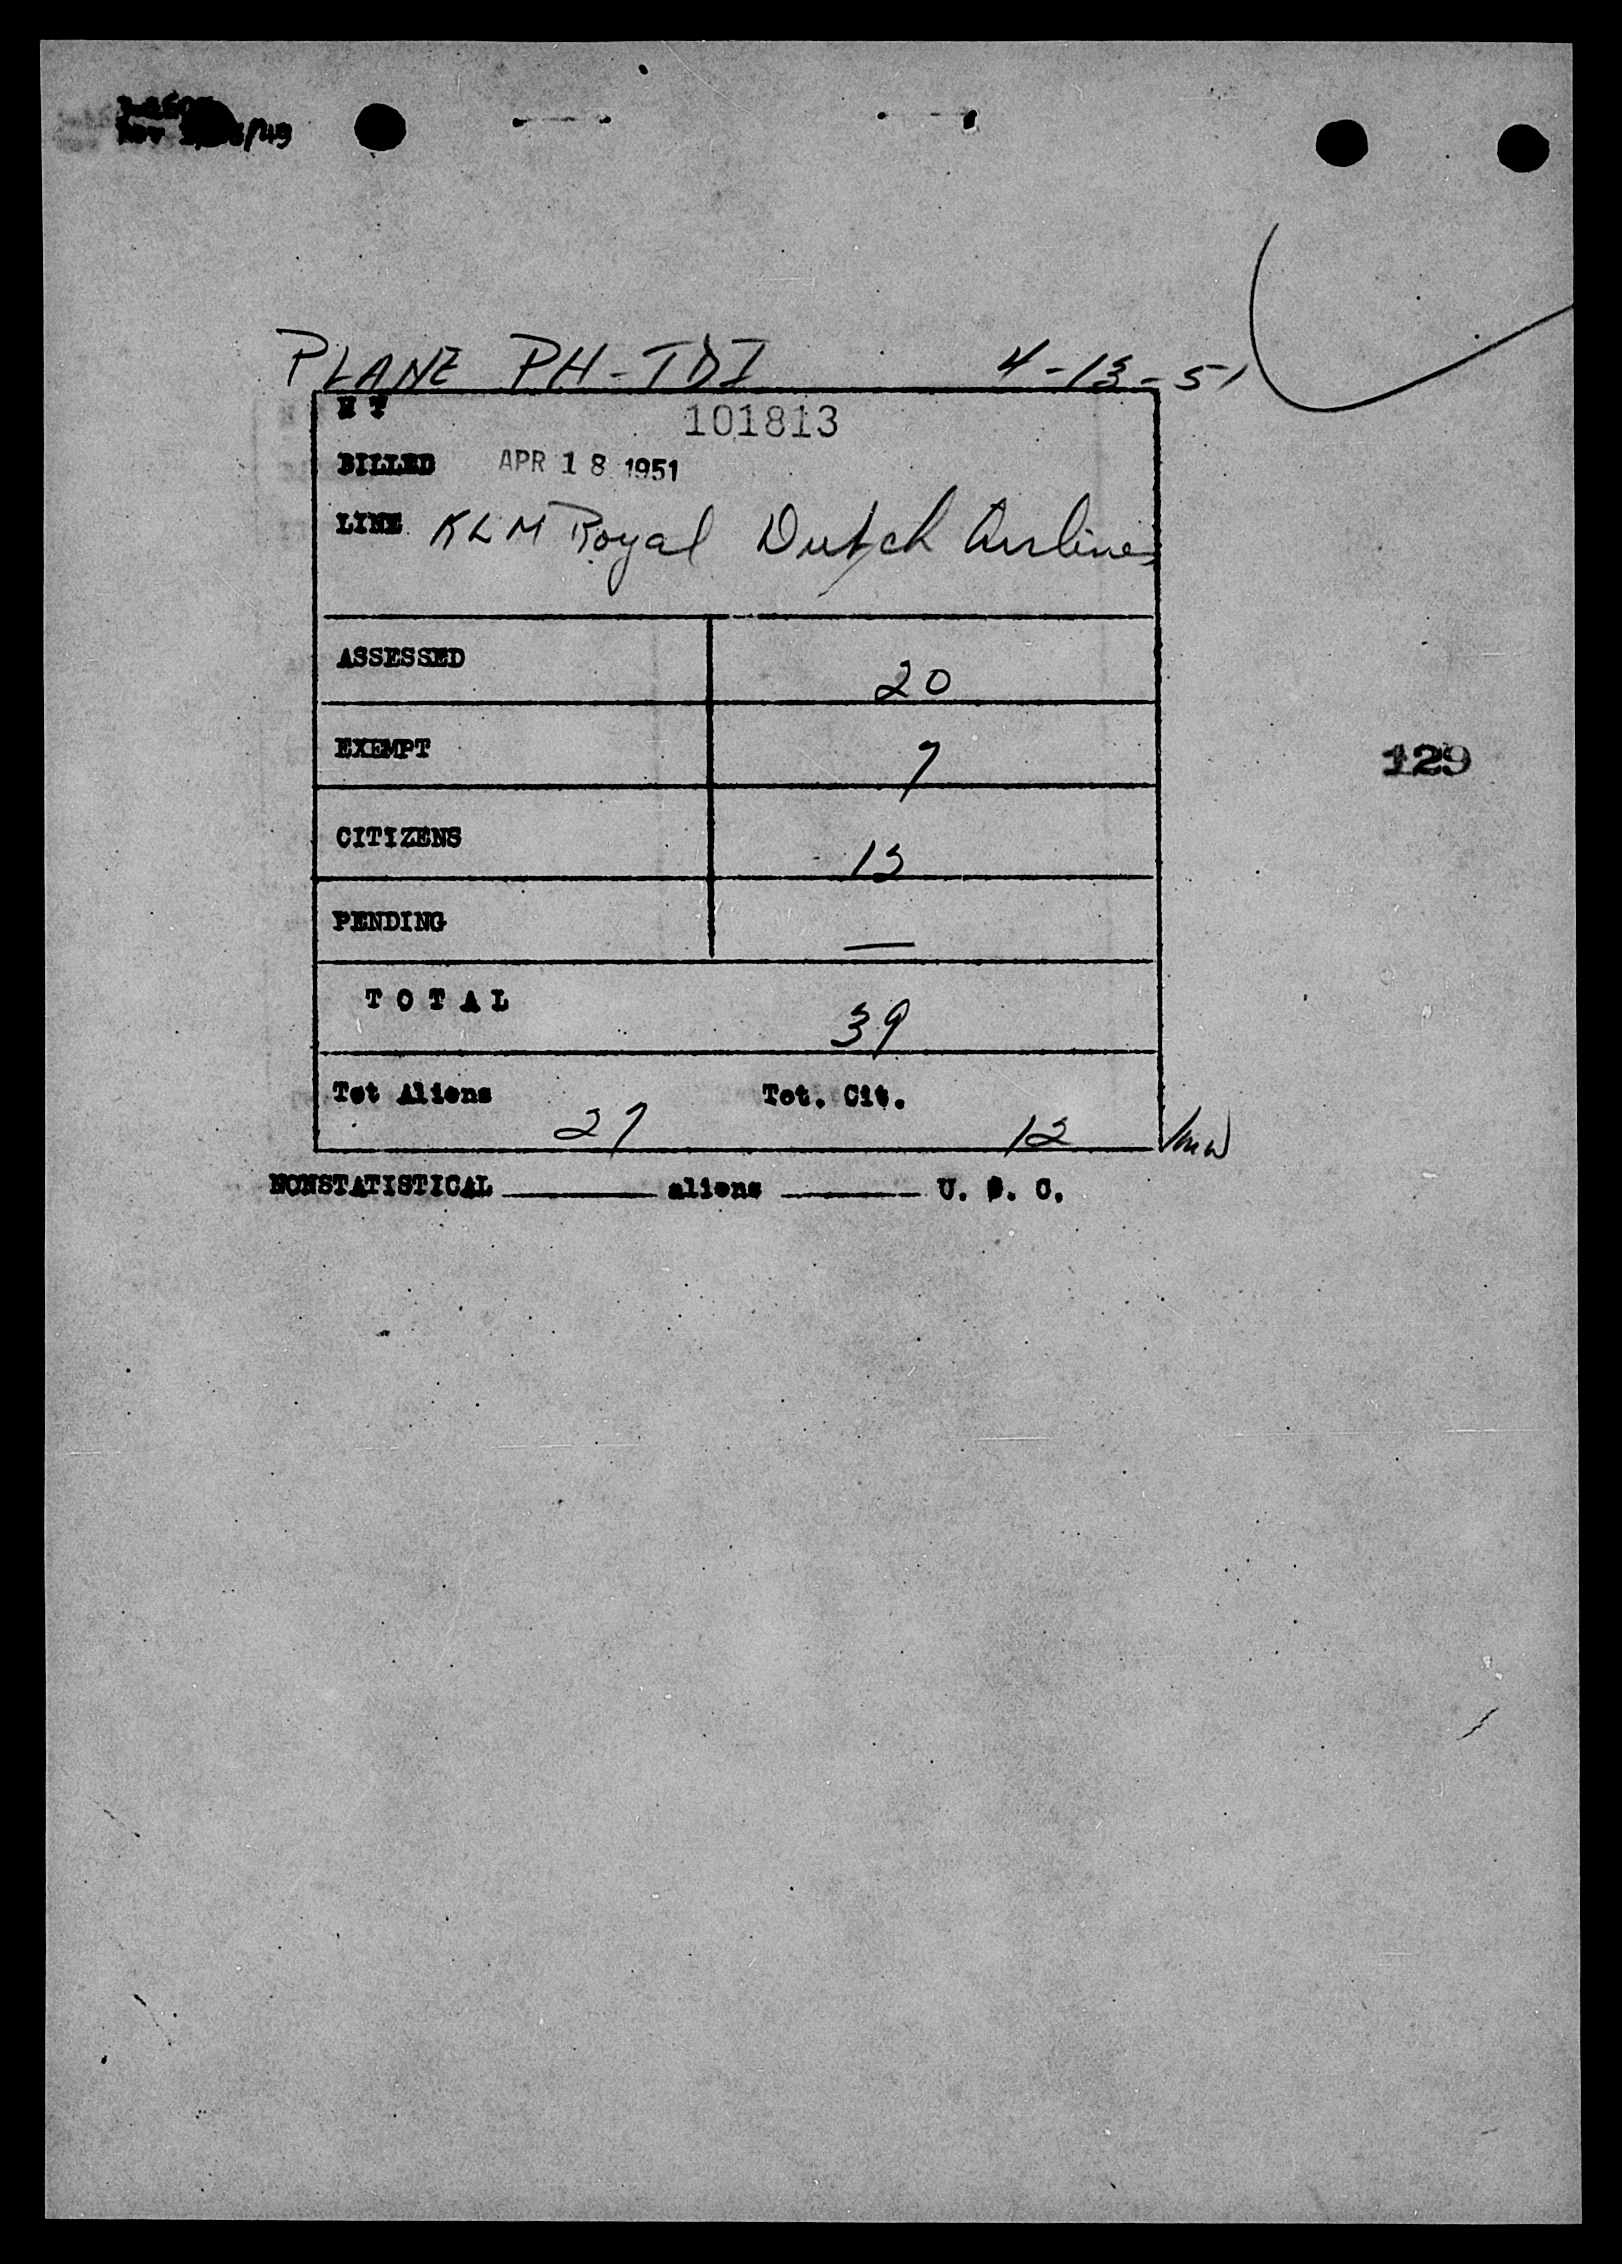 PLANE PH-TDI 4-13-51
M T 101813
BILLED APR 18 1951
LINE KLM Royal Dutch Airlines
ASSESSED 20
EXEMPT 7
129
CITIZENS
PENDING —
TOTAL 39
Tot Aliens 27 Tot. Cit. 12
NONSTATISTICAL ______ aliens ______ U. S. C.